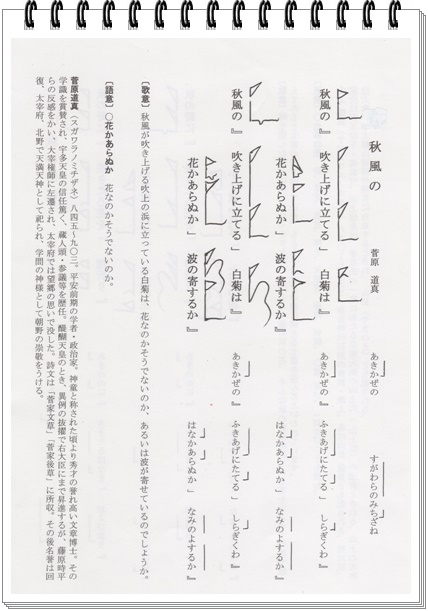 秋風の 菅原 道真 あきかぜの すがわらのみちざね
秋風の』 吹き上げに立てる」 白菊は』 あきかぜの』 ふきあげにたてる」 しらぎくわ』
花かあらぬか」 波の寄するか』 はなかあらぬか」 なみのよするか』
秋風の』 吹き上げに立てる」 白菊は』 あきかぜの』 ふきあげにたてる」 しらぎくわ』
花かあらぬか」 波の寄するか』 はなかあらぬか」 なみのよするか』
〔歌意〕 秋風が吹き上げる吹上の浜に立っている白菊は、花なのかそうでないのか、あるいは波が寄せているのでしょうか。
〔語意〕〇花かあらぬか 花なのかそうでないのか。
菅原道真(スガワラノミチザネ)八四五〜九〇三。平安前期の学者・政治家。神童と称された頃より秀才の誉れ高い文章博士。その
学識を賞賛され、宇多天皇の信任篤く、蔵人頭・参議等を歴任。醍醐天皇のとき、異例の抜擢で右大臣にまで昇進するが、藤原時平
らの反感をかい、大宰権師に左遷され、太宰府では望郷の思いで没した。詩文は「菅家文草」「菅家後草」に所収。その後名誉は回
復、太宰府、北野で天満天神として祀られ、学問の神様として朝野の崇敬をうける。